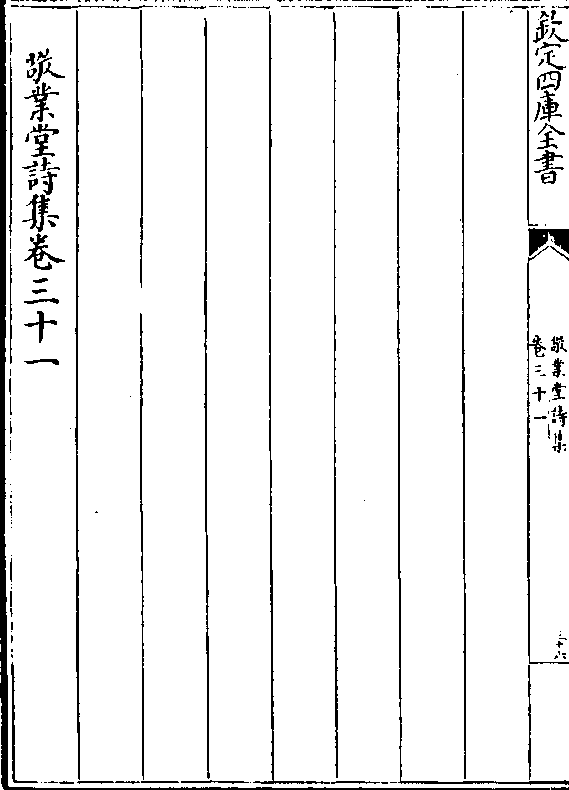 欽定四庫全書
敬業堂詩集
卷三十一
三十六
敬業堂詩集卷三十一